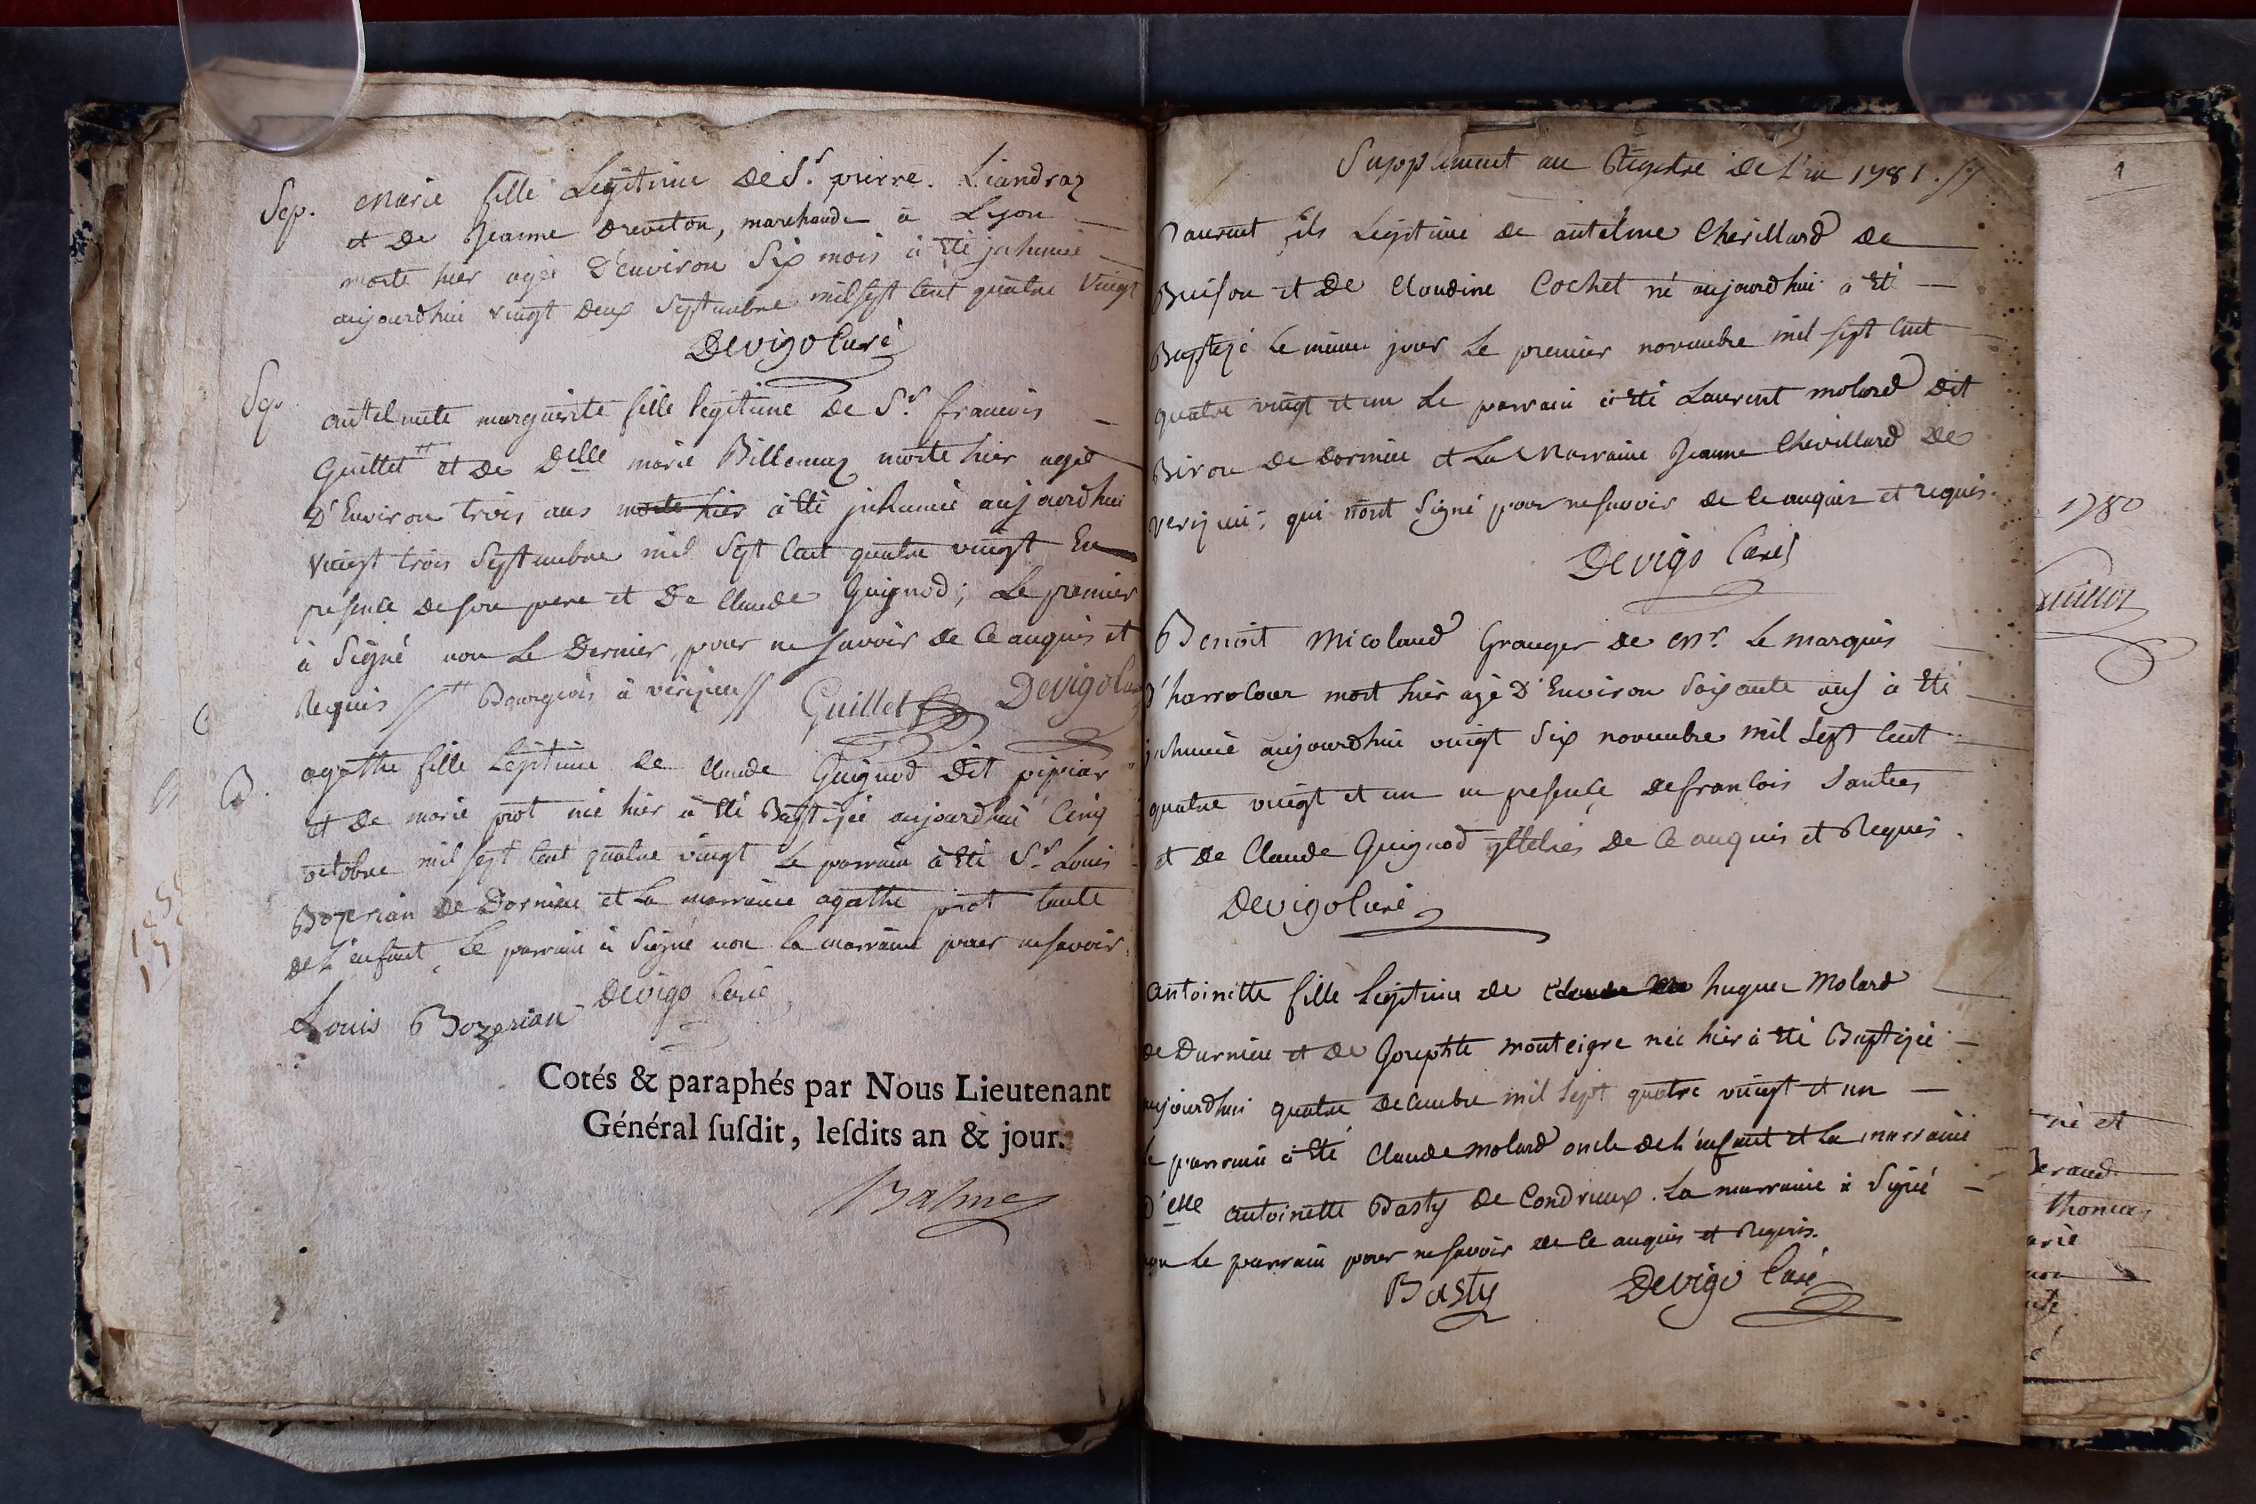 Sep. Marie fille Legitime de Sr. pierre. Liandraz
et De Jeanne Dreveton, marchande à Lyon
morte hier agée D'environ Six mois à Eté inhumée
aujourdhui vingt Deux Septembre mil sept cent quatre vingt
Devigo Curé
Sep. anthelmette marguerite fille legitime de Sr. francois
Guillet tt et de Delle marie Billemaz morte hier agée
D'Environ trois ans morte hier à Eté inhumée aujourdhui
vingt trois Septembre mil Sept Cent quatre vingt En
presence de son pere et De Claude Guignod; Le premier
à Signé non Le Dernier, pour ne Savoir De Ce anquis et
Requis // tt Bourgeois à virijeu // Guillet Devigo Curé
B. agathe fille Legitime de Claude Guignod Dit pipiar
et De marie piot née hier à Eté Baptisée aujourdhui Cinq
octobre mil sept Cent quatre vingt Le parrain à Eté Sr. Louis
Bozerian De Dornieu et La marraine agathe piot tante
de L'enfant, Le parrain à Signé non la marraine pour ne savoir.
Louis Bozerian Devigo Curé
Cotés & paraphés par Nous Lieutenant
Général fufdit, lefdits an & jour.
Balme
Supplement au Registre de L'an 1781.
Laurent fils Legitime de antelme Chevillard de
Buison et De Claudine Cochet né aujourdhui à Eté
Baptisé Le même jour Le premier novembre mil sept Cent
quatre vingt et un Le parrain à Eté Laurent molard Dit
Biron De Dornieu et La Marraine Jeanne Chevillard De
verijeu; qui n'ont Signé pour ne Savoir de Ce anquis et requis.
Devigo Curé
Benoit Micoland Granger de Mr. Le marquis
D'harrocour mort hier agé D'Environ Soixante ans à Eté
inhumé aujourdhui vingt Six novembre mil Sept Cent
quatre vingt et un en presence de francois
et De Claude Guignod De Ce anquis et Requis.
Devigo Curé
antoinette fille Legitime de Claude Mo hugues Molard
de Durnieu et de Josephte monteigre née hier à Eté Baptisée
aujourdhui quatre decembre mil Sept quatre vingt et un
Le parrain à Eté Claude molard oncle de L'enfant et La marraine
D'elle antoinette Basty de Condrieux. La marraine à Signé
non Le parrain pour ne Savoir de Ce anquis et Requis.
Basty Devigo Curé
1
1780
né et
Beraud
thomas